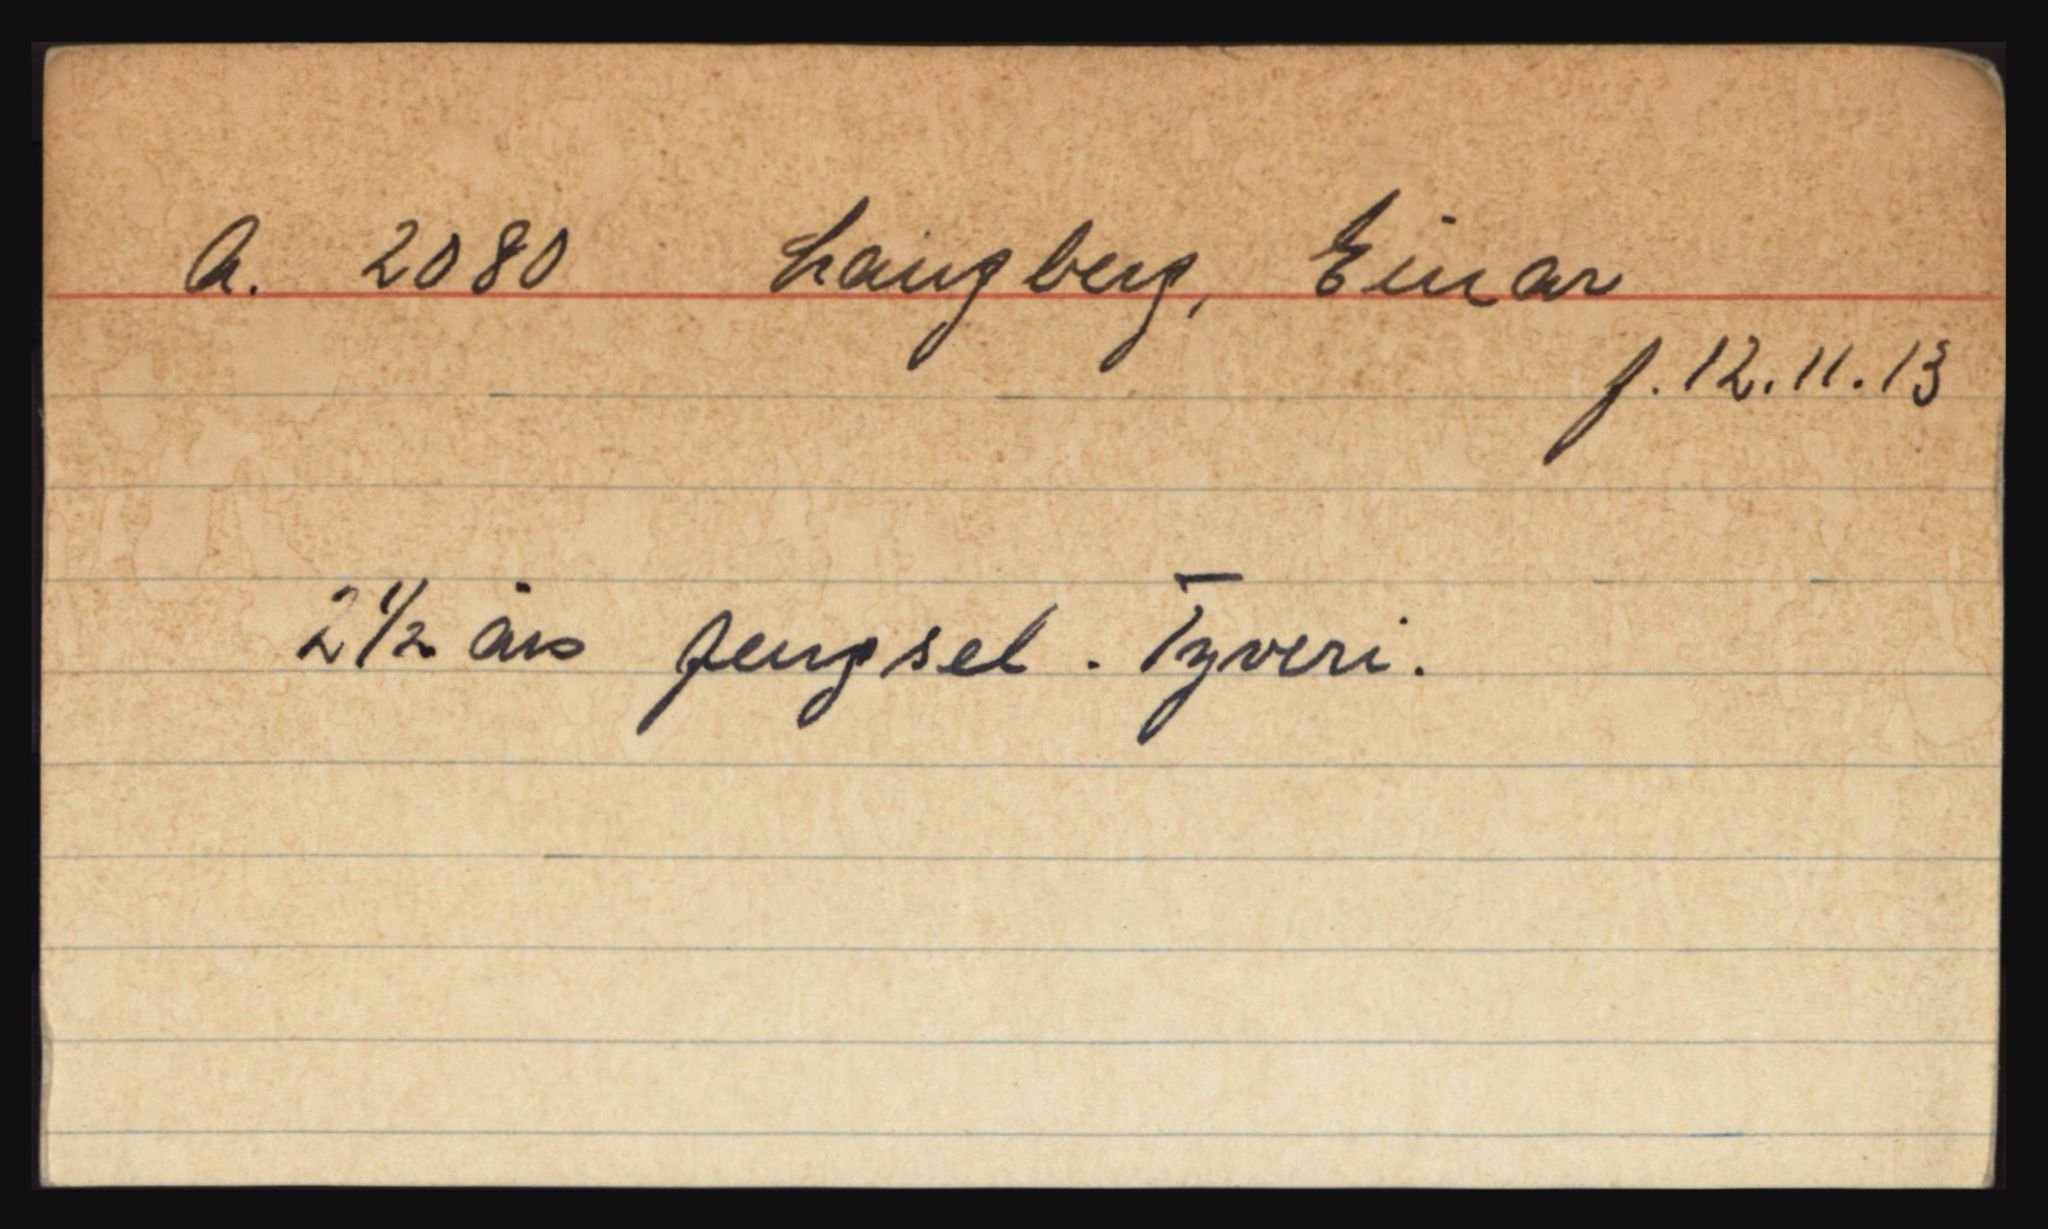 A. 2080 Langberg, Einar
f. 12.11.13
2 1/2 års fengsel. Tyveri.